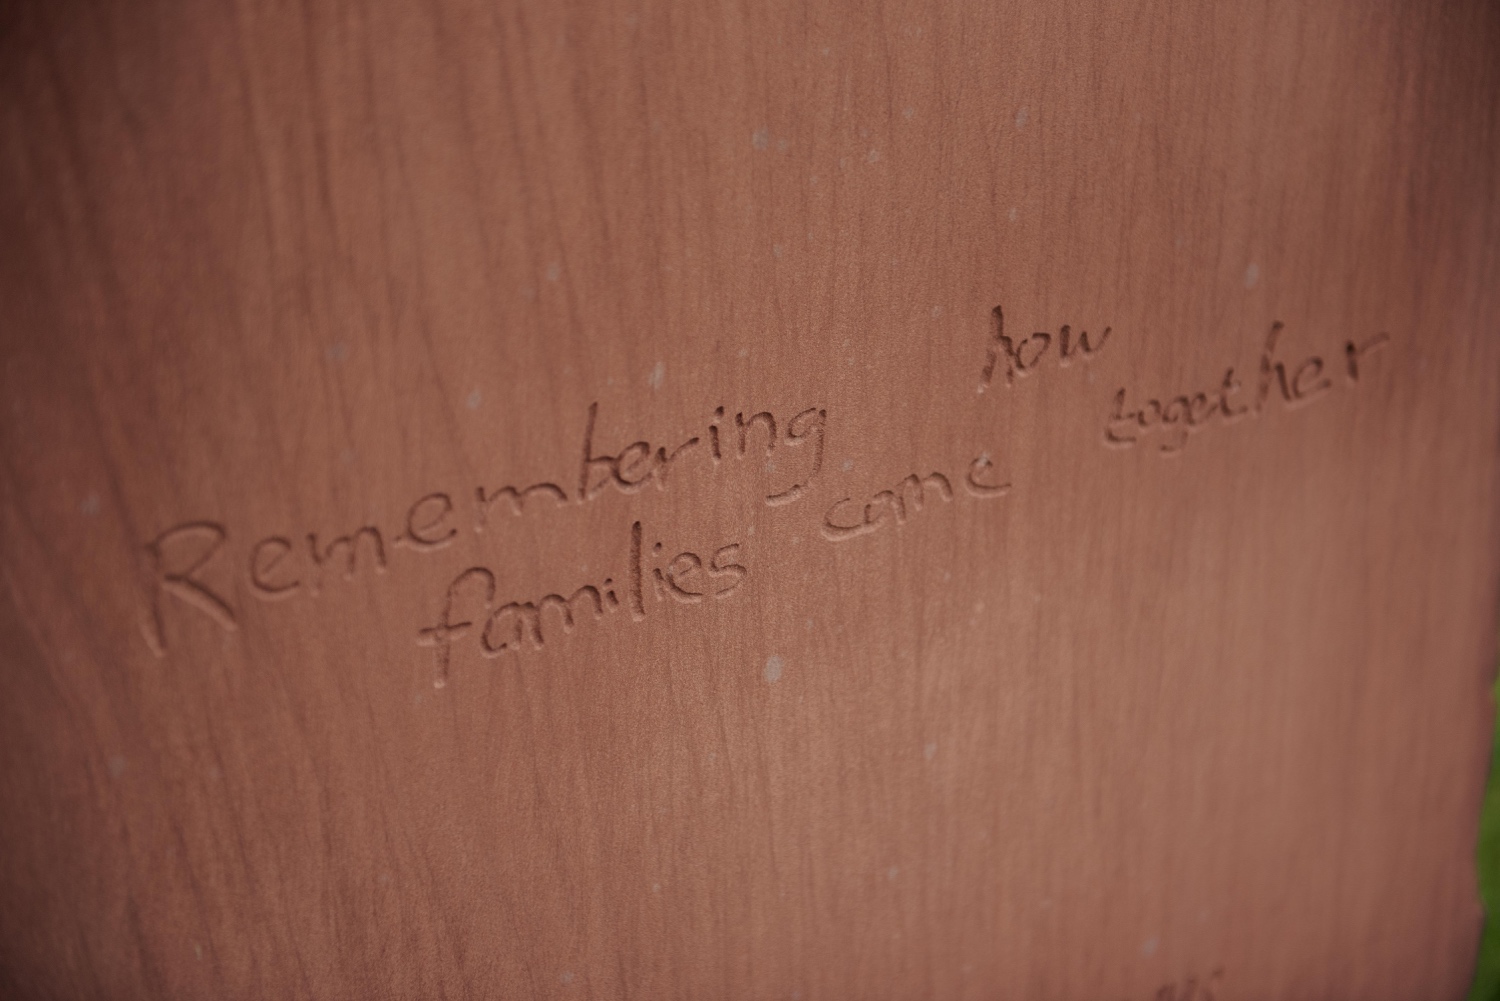 Remembering how
families come together